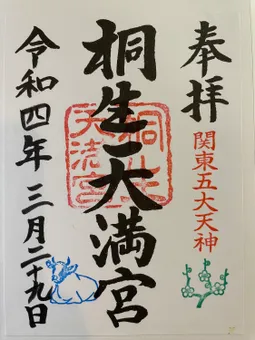 奉拝
関東五大天神
桐生天満宮
桐生天満宮
令和四年三月二十九日